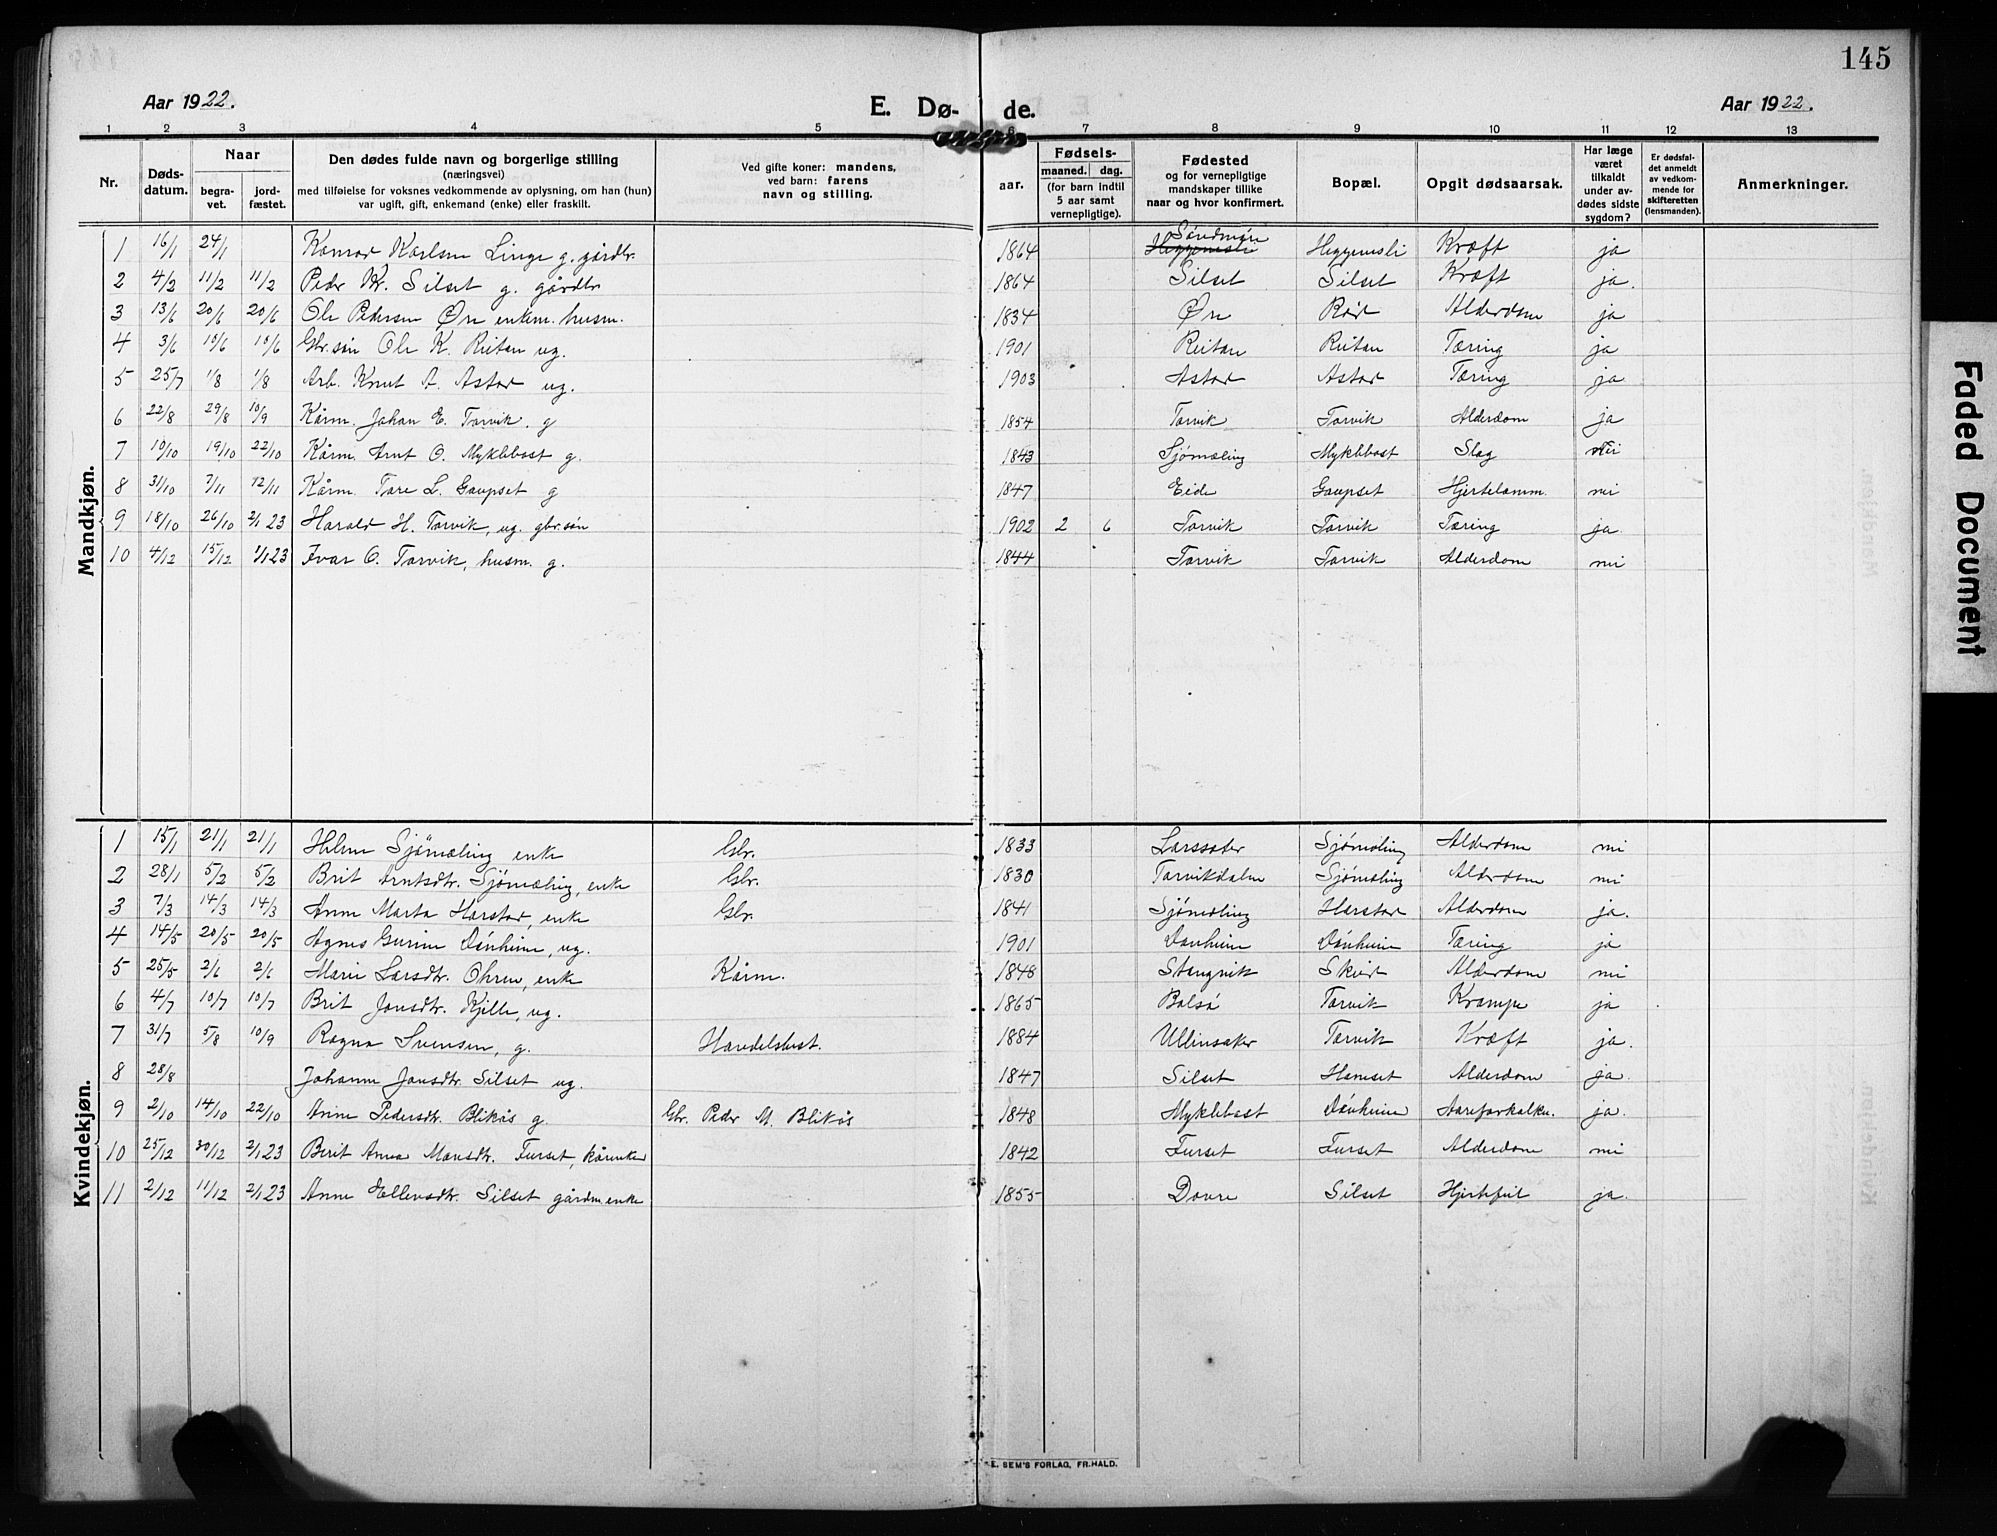 145
Aar 1922.
E. Dø- de.
Aar 1922.
1 2 3 4 5 6 7 8 9 10 11 12 13
Nr.
Døds-datum.
Naar
begra-vet.
jord-fæstet.
Den dødes fulde navn og borgerlige stilling
(næringsvei)
med tilføielse for voksnes vedkommende av oplysning, om han (hun)
var ugift, gift, enkemand (enke) eller fraskilt.
Ved gifte koner: mandens,
ved barn: farens
navn og stilling.
aar.
Fødsels-
maaned. dag.
(for barn indtil
5 aar samt
vernepligtige).
Fødested
og for vernepligtige
mandskaper tillike
naar og hvor konfirmert.
Bopæl.
Opgit dødsaarsak.
Har læge
været
tilkaldt
under av-
dødes sidste
sygdom?
Er dødsfal-
det anmeldt
av vedkom-
mende for
skifteretten
(lensmanden).
Anmerkninger.
Mandkjøn.
1 16/1 24/1 Konrad Karlsen Linge g. gårdbr. 1864 Heggemsli Søndmøre Heggemsli Kræft ja
2 4/2 11/2 11/2 Peder Kr. Silset g. gårdbr 1864 Silset Silset Kræft ja.
3 13/6 20/6 20/6 Ole Pedersen Øre enkem. husm. 1834 Øre Rød Alderdom ja
4 3/6 10/6 10/6 Gbr.søn Ole K. Reitan ug. 1901 Reitan Reitan Tæring ja
5 25/7 1/8 1/8 Arb. Knut A. Astad ug. 1903 Astad Astad Tæring ja
6 22/8 29/8 10/9 Kårm. Johan E. Torvik. g 1854 Torvik Torvik Alderdom ja
7 10/10 19/10 22/10 Kårm. Arnt O. Myklebost g. 1843 Sjømæling Myklebost Slag nei
8 31/10 7/11 12/11 Kårm. Tore L. Gaupset g 1847 Eide Gaupset Hjertelamm. nei
9 18/10 26/10 2/1 23 Harald H. Torvik, ug. gbr.søn 1902 2 6 Torvik Torvik Tæring ja
10 4/12 15/12 1/1 23 Ivar O. Torvik, husm. g. 1844 Torvik Torvik Alderdom nei
Kvindekjøn.
1 15/1 21/1 21/1 Helene Sjømæling enke Gbr. 1833 Larssæter Sjømæling Alderdom nei
2 28/1 5/2 5/2 Brit Arntsdtr. Sjømæling, enke Gbr. 1830 Torvikdalen Sjømæling Alderdom nei
3 7/3 14/3 14/3 Anne Marta Harstad, enke Gbr. 1841 Sjømæling Harstad Alderdom ja.
4 14/5 20/5 20/5 Agnes Gurine Dønheim, ug. 1901 Dønheim Dønheim Tæring ja
5 25/5 2/6 2/6 Marie Larsdtr. Ohren, enke Kårm. 1848 Stangvik Skeid Alderdom nei
6 4/7 10/7 10/7 Brit Jonsdtr. Kjelle, ug. 1865 Bolsø Torvik Krampe ja
7 31/7 5/8 10/9 Ragna Svensen, g. Handelsbest. 1884 Ullensaker Torvik Kræft ja.
8 28/8 Johanne Jonsdtr. Silset ug. 1847 Silset Hamset Alderdom ja.
9 2/10 14/10 22/10 Anne Pedersdtr. Blikås g. Gbr. Peder M. Blikås 1848 Myklebost Dønheim Aareforkalkn. ja.
10 25/12 30/12 2/1 23 Berit Anna Monsdtr. Furset, kårenke 1842 Furset Furset Alderdom nei
11 2/12 11/12 2/1 23 Anne Ellevsdtr. Silset gårdm.enke 1855 Dovre Silset Hjertefeil ja.
E. SEM'S FORLAG, FR.HALD.
Faded Document